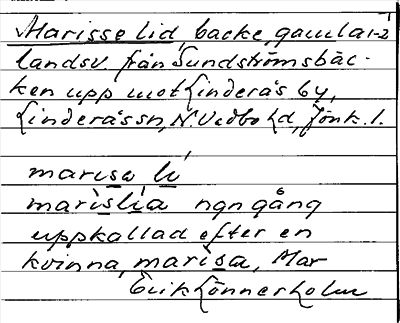 Marisse lid, backe, gamla 1-2
landsv. från Sundströmsbäc-
ken upp mot Linderås by,
Linderåssn, N. Vedbo hd, Jönk. l.
marisa li
marislia ngn gång
uppkallad efter en
kvinna, marisa, Mar
Erik Lönnerholm